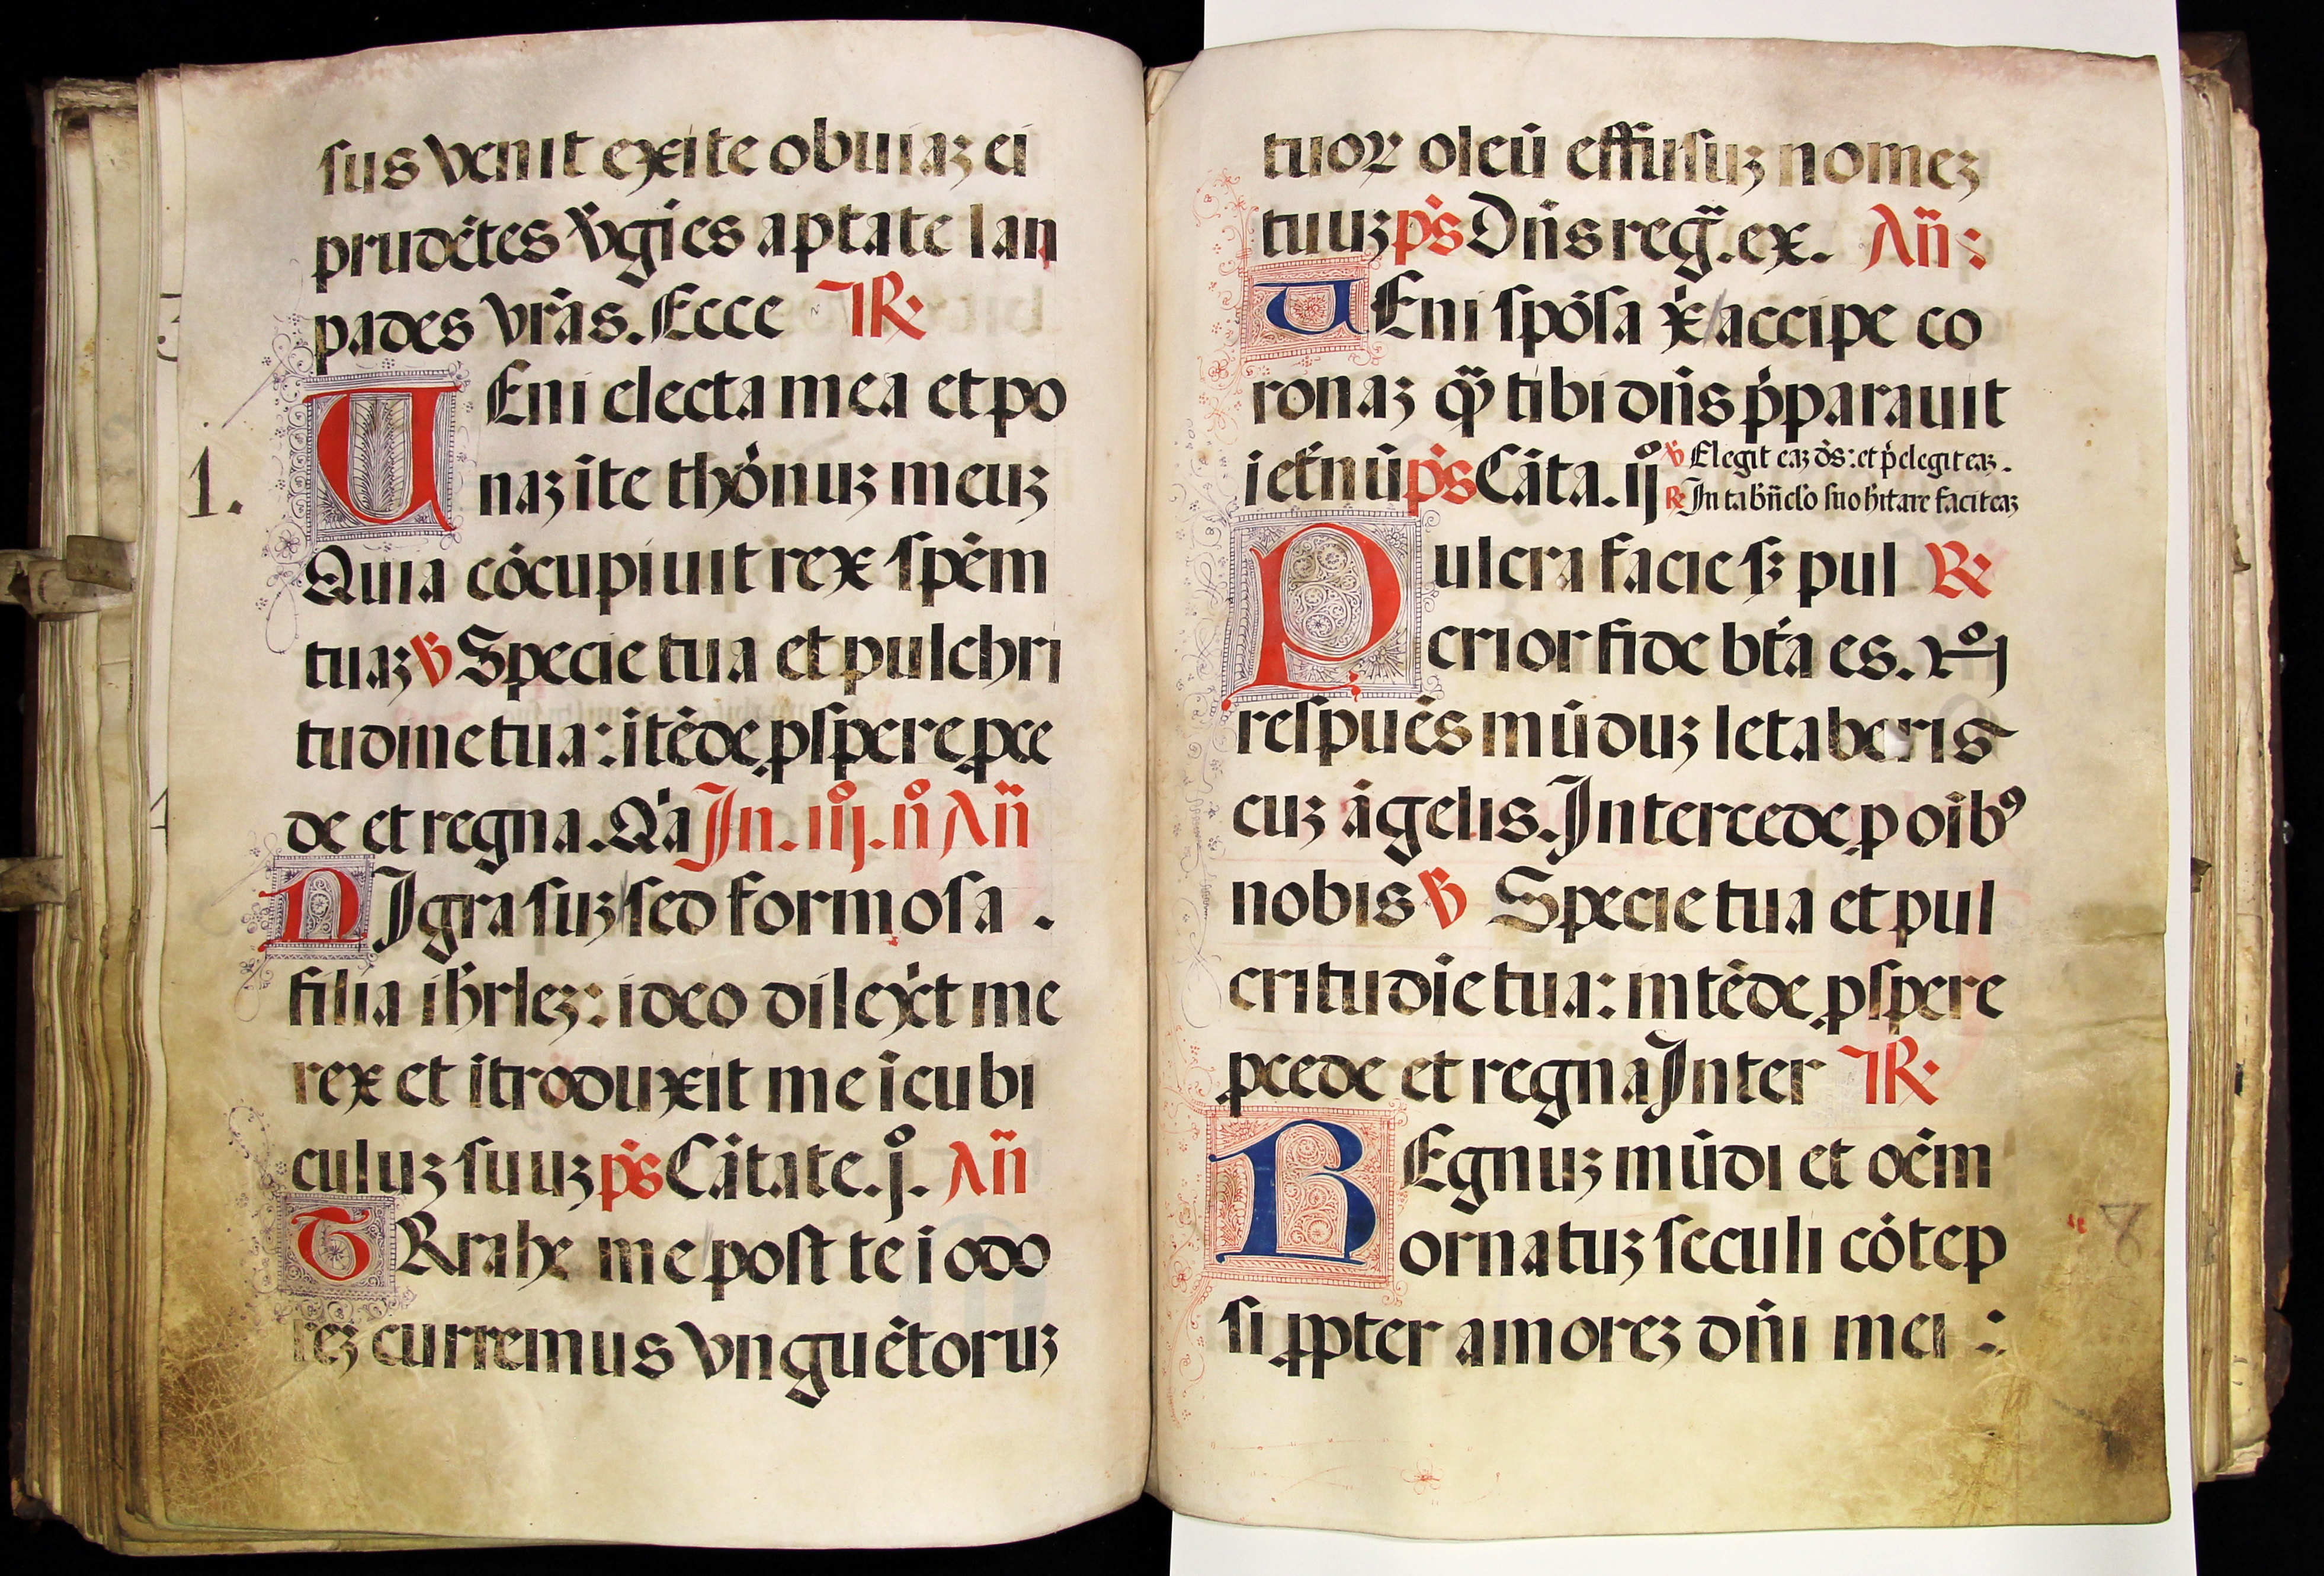 sus venit exite obuiaʒ ei
prudētes v̇gīes aptate lan
pades vrās. Ecce R
1.
UEni electa mea et po
naʒ ī te thōnuʒ meuʒ
Quia cōcupiuit rex spēm
tuaʒ ℣ Specie tua et pulchri
tudine tua: ītēde ꝓspere ꝓce
de et regna. Qa̍ In. iijº. nº An̄
NIgra suʒ sed formosa .
filia ihr̄leʒ: ideo dilex̍t me
rex et ītroduxit me ī cubi
culuʒ suuʒ ps̄ Cātate. jº. An̄
TRrahe me post te ī odo
reʒ curremus vnguētoruʒ
tuoꝝ oleū effusuʒ nomeʒ
tuuʒ ps̄ Dn̄s reḡ. ex. An̄:
UEni spōsa xp̄i accipe co
ronaʒ qm̄ tibi dn̄s p̄parauit
ī et̄nū ps̄ Cāta. ijº
℣ Elegit eaʒ ds̄: et p̄elegit eaʒ.
℟ In tabn̄clo suo hītare facit eaʒ
Pulcra facie sʒ pul ℟
crior fide btā es.
respuēs mūduʒ letaberis
cuʒ āgelis. Intercede ꝓ oībꝰ
nobis ℣ Specie tua et pul
critudīe tua: intēde ꝓspere
ꝓcede et regna Inter R
REgnuʒ mūdi et oēm
ornatuʒ seculi cōtēp
si ꝓpter amoreʒ dn̄i mei :